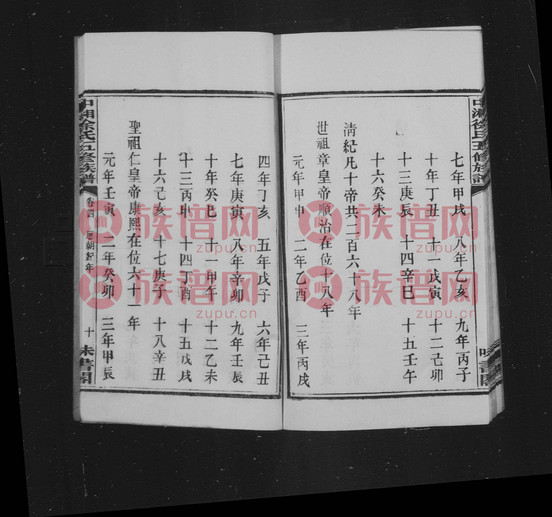 中湘徐氏五修族譜
七年甲戌 八年乙亥 九年丙子
十年丁丑 十一戊寅 十二己卯
十三庚辰 十四辛巳 十五壬午
十六癸未
清紀凡十帝共二百六八年
世祖章皇帝順治在位十八年
元年甲申 二年乙酉 三年丙戌
四年丁亥 五年戊子 六年己丑
七年庚寅 八年辛卯 九年壬辰
十年癸巳 十一甲午 十二乙未
十三丙申 十四丁酉 十五戊戌
十六己亥 十七庚子 十八辛丑
聖祖仁皇帝康熙在位六十一年
元年壬寅 二年癸卯 三年甲辰
中湘徐氏五修族譜 卷首 歷朝紀年 十 味書閣
族谱网
zupu.cn
族谱网
zupu.cn
族谱网
zupu.cn
族谱网
zupu.cn